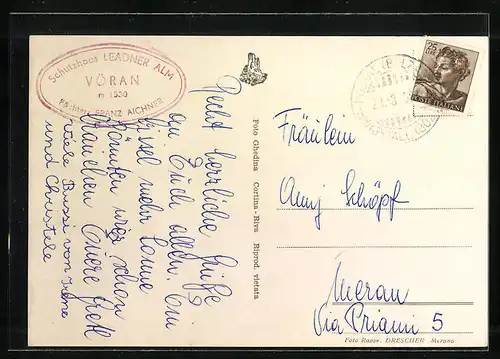 Schutzhaus LEADNER ALM
VÖRAN
m 1530
Pächter: FRANZ AICHNER
Recht herzliche Grüße
an Euch allen. Ein
bissel mehr Sonne
könnten wir schon
brauchen Eure Gretl
Viele Bussi von Irene
und Christele
Foto Ghedina Cortina - Riva Riprod. vietata
25
LIRE
POSTE ITALIANE
Fräulein
Schöpf
Meran
Via Priami 5
Foto Rappr. DRESCHER Merano